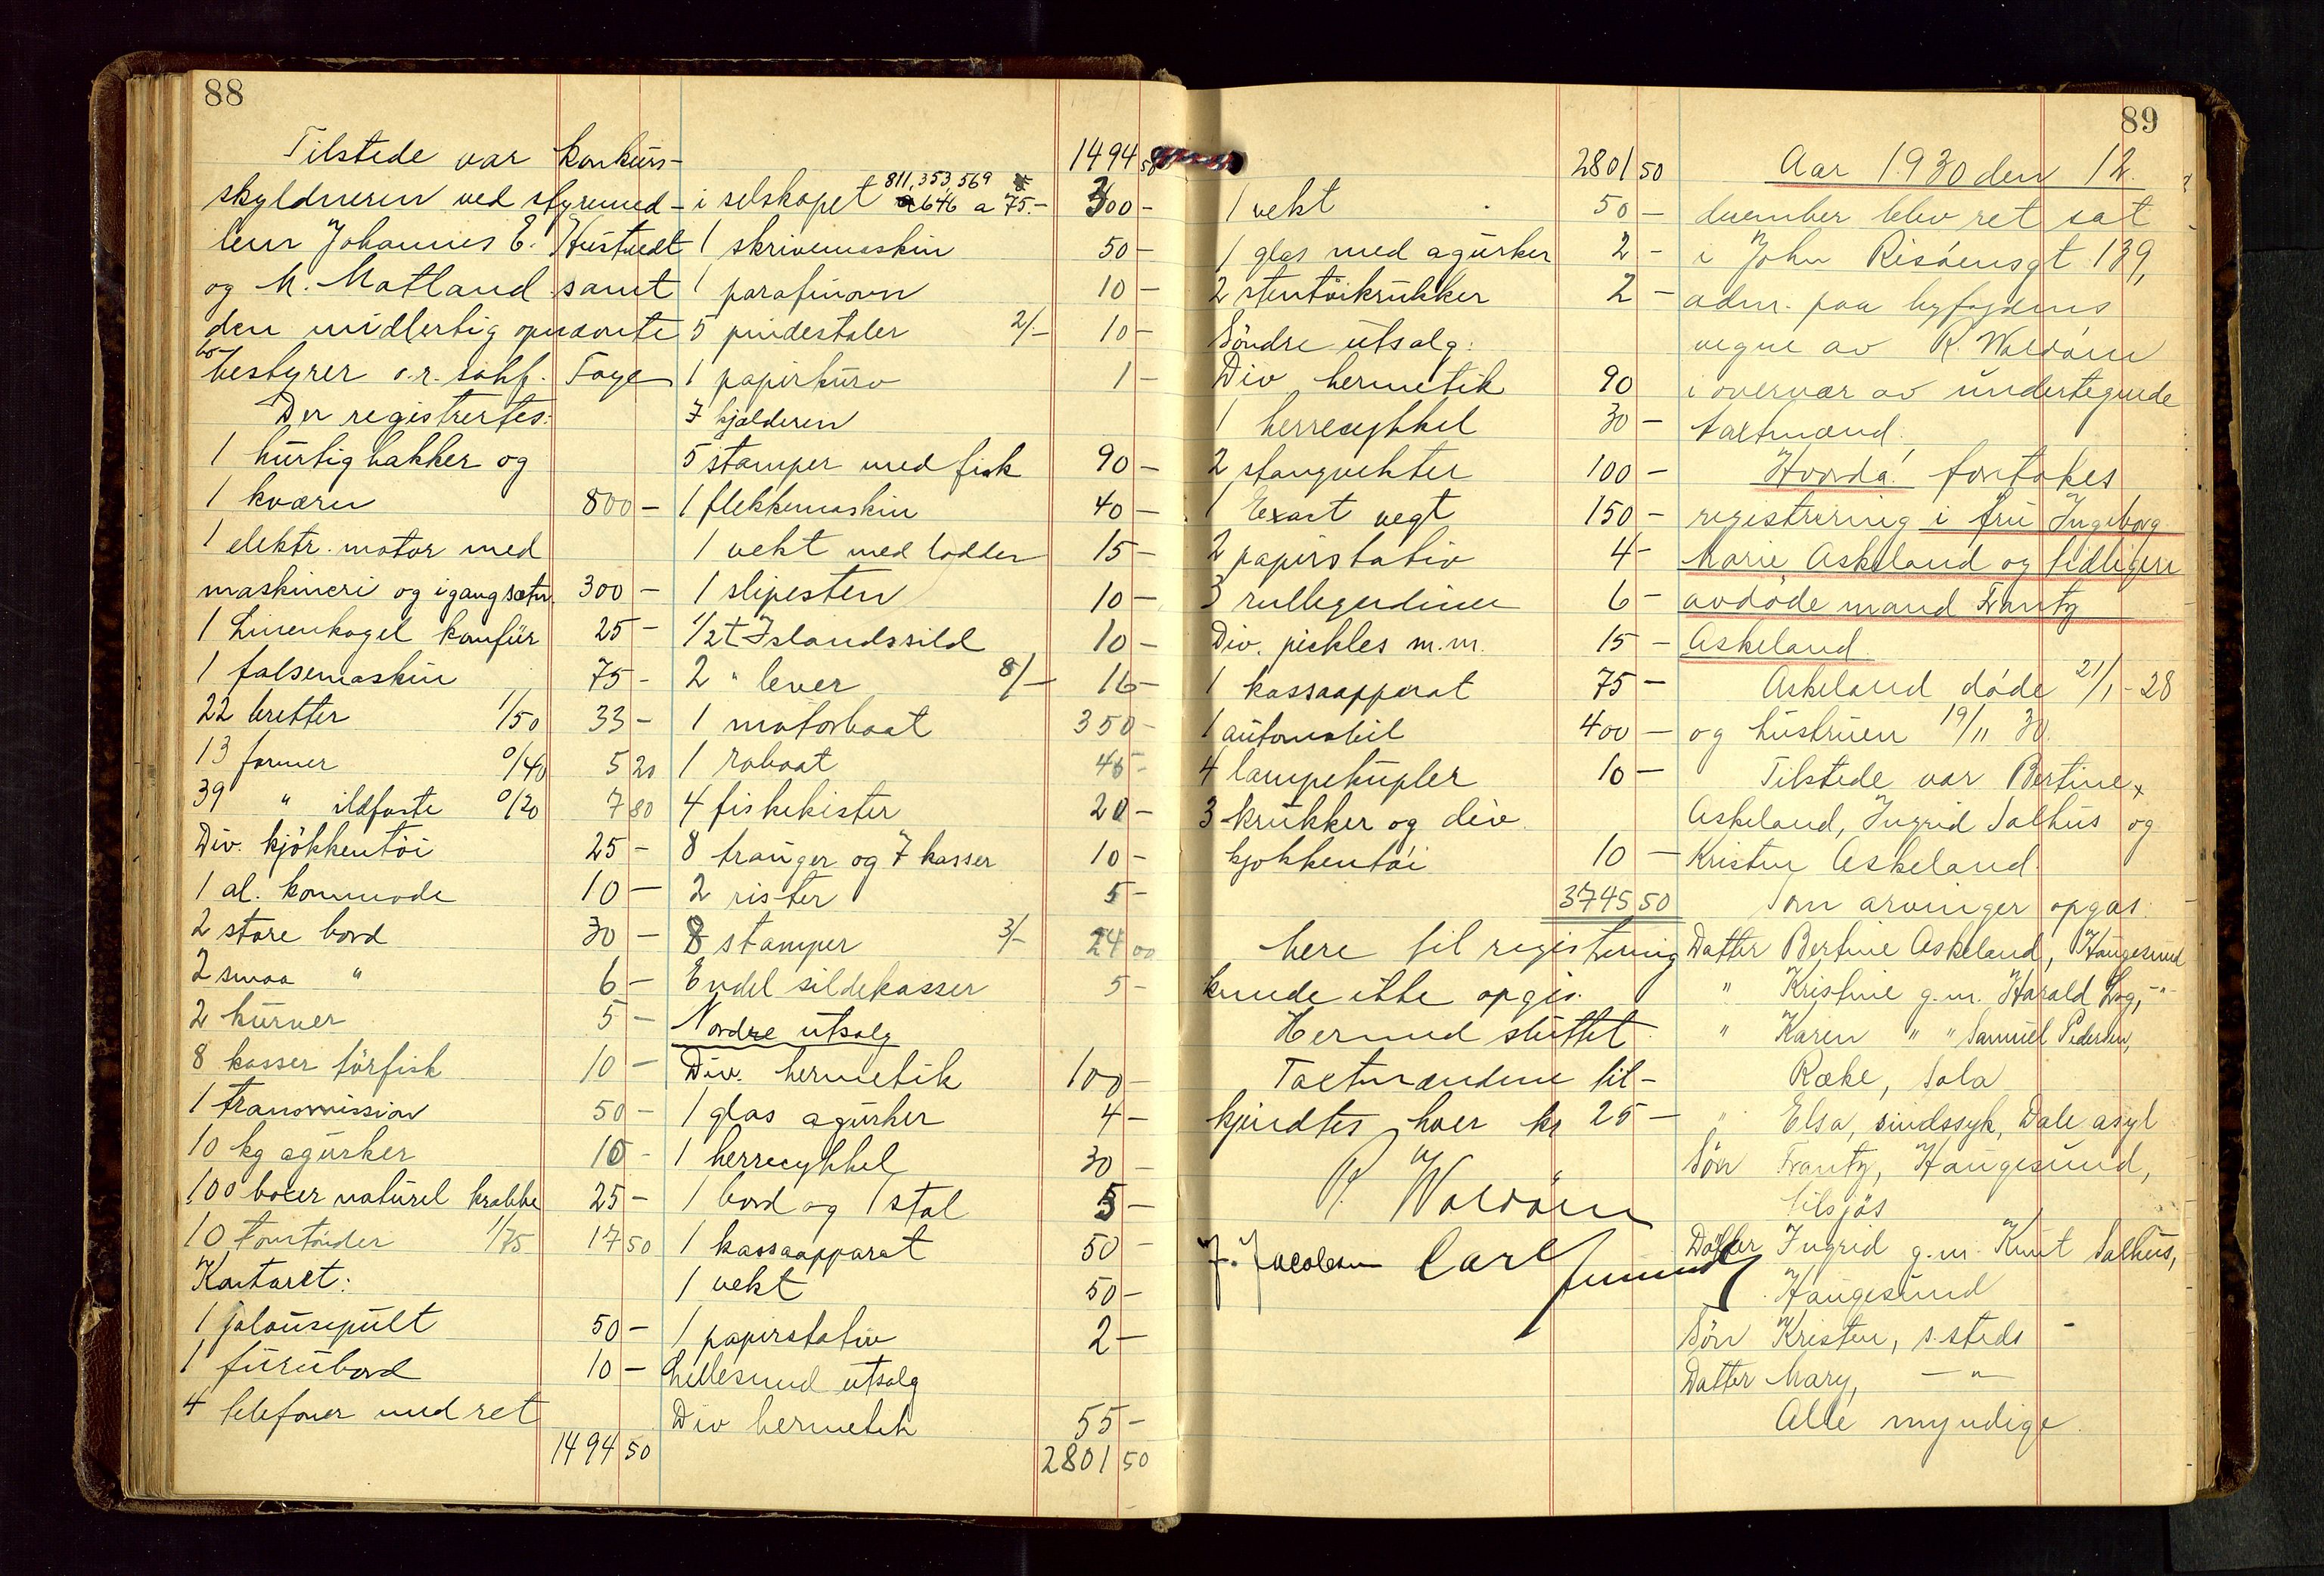 88
Tilstede var konkurs-
skyldneren ved styremed-
lem Johannes E. Hustvedt
og M. Matland samt
den midlertig opnævnte
bo-
bestyrer o.r. sakf. Faye
Der registrertes:
1 hurtighakker og
1 kværn 800 -
1 elektr. motor med
maskineri og igangsætn. 300 -
1 Linenkogel komfür 25 -
1 falsemaskin 75 -
22 bretter 1/50 33 -
13 former 0/40 5 20
39 " ildfaste 0/20 7 80
Div. kjøkkentøi 25 -
1 al. kommode 10 -
2 store bord 30 -
2 smaa " 6 -
2 kurver 5 -
8 kasser törfisk 10 -
1 transmission 50 -
10 kg agurker 10 -
100 bokser naturel krabbe 25 -
10 tomtønder 1/75 17 50
Kontoret:
1 jalousipult 50 -
1 furubord 10 -
4 telefoner med ret
1494 50
1494 50
i selskapet 811, 353, 569 646 a 75.- 300 -
1 skrivemaskin 50 -
1 parafinovn 10 -
5 pindestoler 2/- 10 -
1 papirkurv 1 -
I kjælderen
5 stamper med fisk 90 -
1 flekkemaskin 40 -
1 vekt med lodder 15 -
1 slipesten 10 -
1/2 t Islandssild 10 -
2 " lever 8/- 16 -
1 motorbaat 350 -
1 robaat 45 -
4 fiskekister 20 -
8 trauger og 7 kasser 10 -
2 rister 5 -
8 stamper 3/- 24 00
Endel sildekasser 5 -
Nordre utsalg
Div. hermetik 100 -
1 glas agurker 4 -
1 herrecykkel 30 -
1 bord og 1 stol 5 -
1 kassaapparat 50 -
1 vekt 50 -
1 papirstativ 2 -
Lillesund utsalg
Div hermetik 55 -
2801 50
2801 50
1 vekt 50 -
1 glas med agurker 2 -
2 stentöikrukker 2 -
Söndre utsalg:
Div hermetik 90
1 herrecykkel 30 -
2 stangvekter 100 -
1 Exact vegt 150 -
2 papirstativ 4 -
3 rullegardiner 6 -
Div. pickles m.m. 15 -
1 kassaapparat 75 -
1 automobil 400 -
4 lampekupler 10 -
3 krukker og div.
kjøkkentøi 10 -
3745 50
Mere til registrering
kunde ikke opgis.
Hermed sluttet.
Taktmændene til-
kjendtes hver kr 25 -
R. Waldöm
J. Jacobsen Carl
89
Aar 1930 den 12.
december blev ret sat
i John Risöensgt. 139,
adm. paa byfogdens
vegne av R. Waldöm
i overvær av undertegnede
takstmænd.
Hvorda! foretokes
registrering i fru Ingeborg
Marie Askeland og tidligere
avdøde mand Frantz
Askeland.
Askeland døde 21/1 - 28
og hustruen 19/11 30.
Tilstede var Bertine
Askeland, Ingrid Salhus og
Kristen Askeland.
Som arvinger opgas:
Datter Bertine Askeland, Haugesund
" Kristine g.m. Harald Log, - " -
" Karen " " Samuel Pedersen,
Ræke, Sola
" Elsa, sindssyk, Dale asyl
Sön Frantz, Haugesund,
tilsjös
Datter Ingrid g.m. Knut Salhus,
Haugesund
Sön Kristen, s. steds
Datter Mary, - " -
Alle myndige.